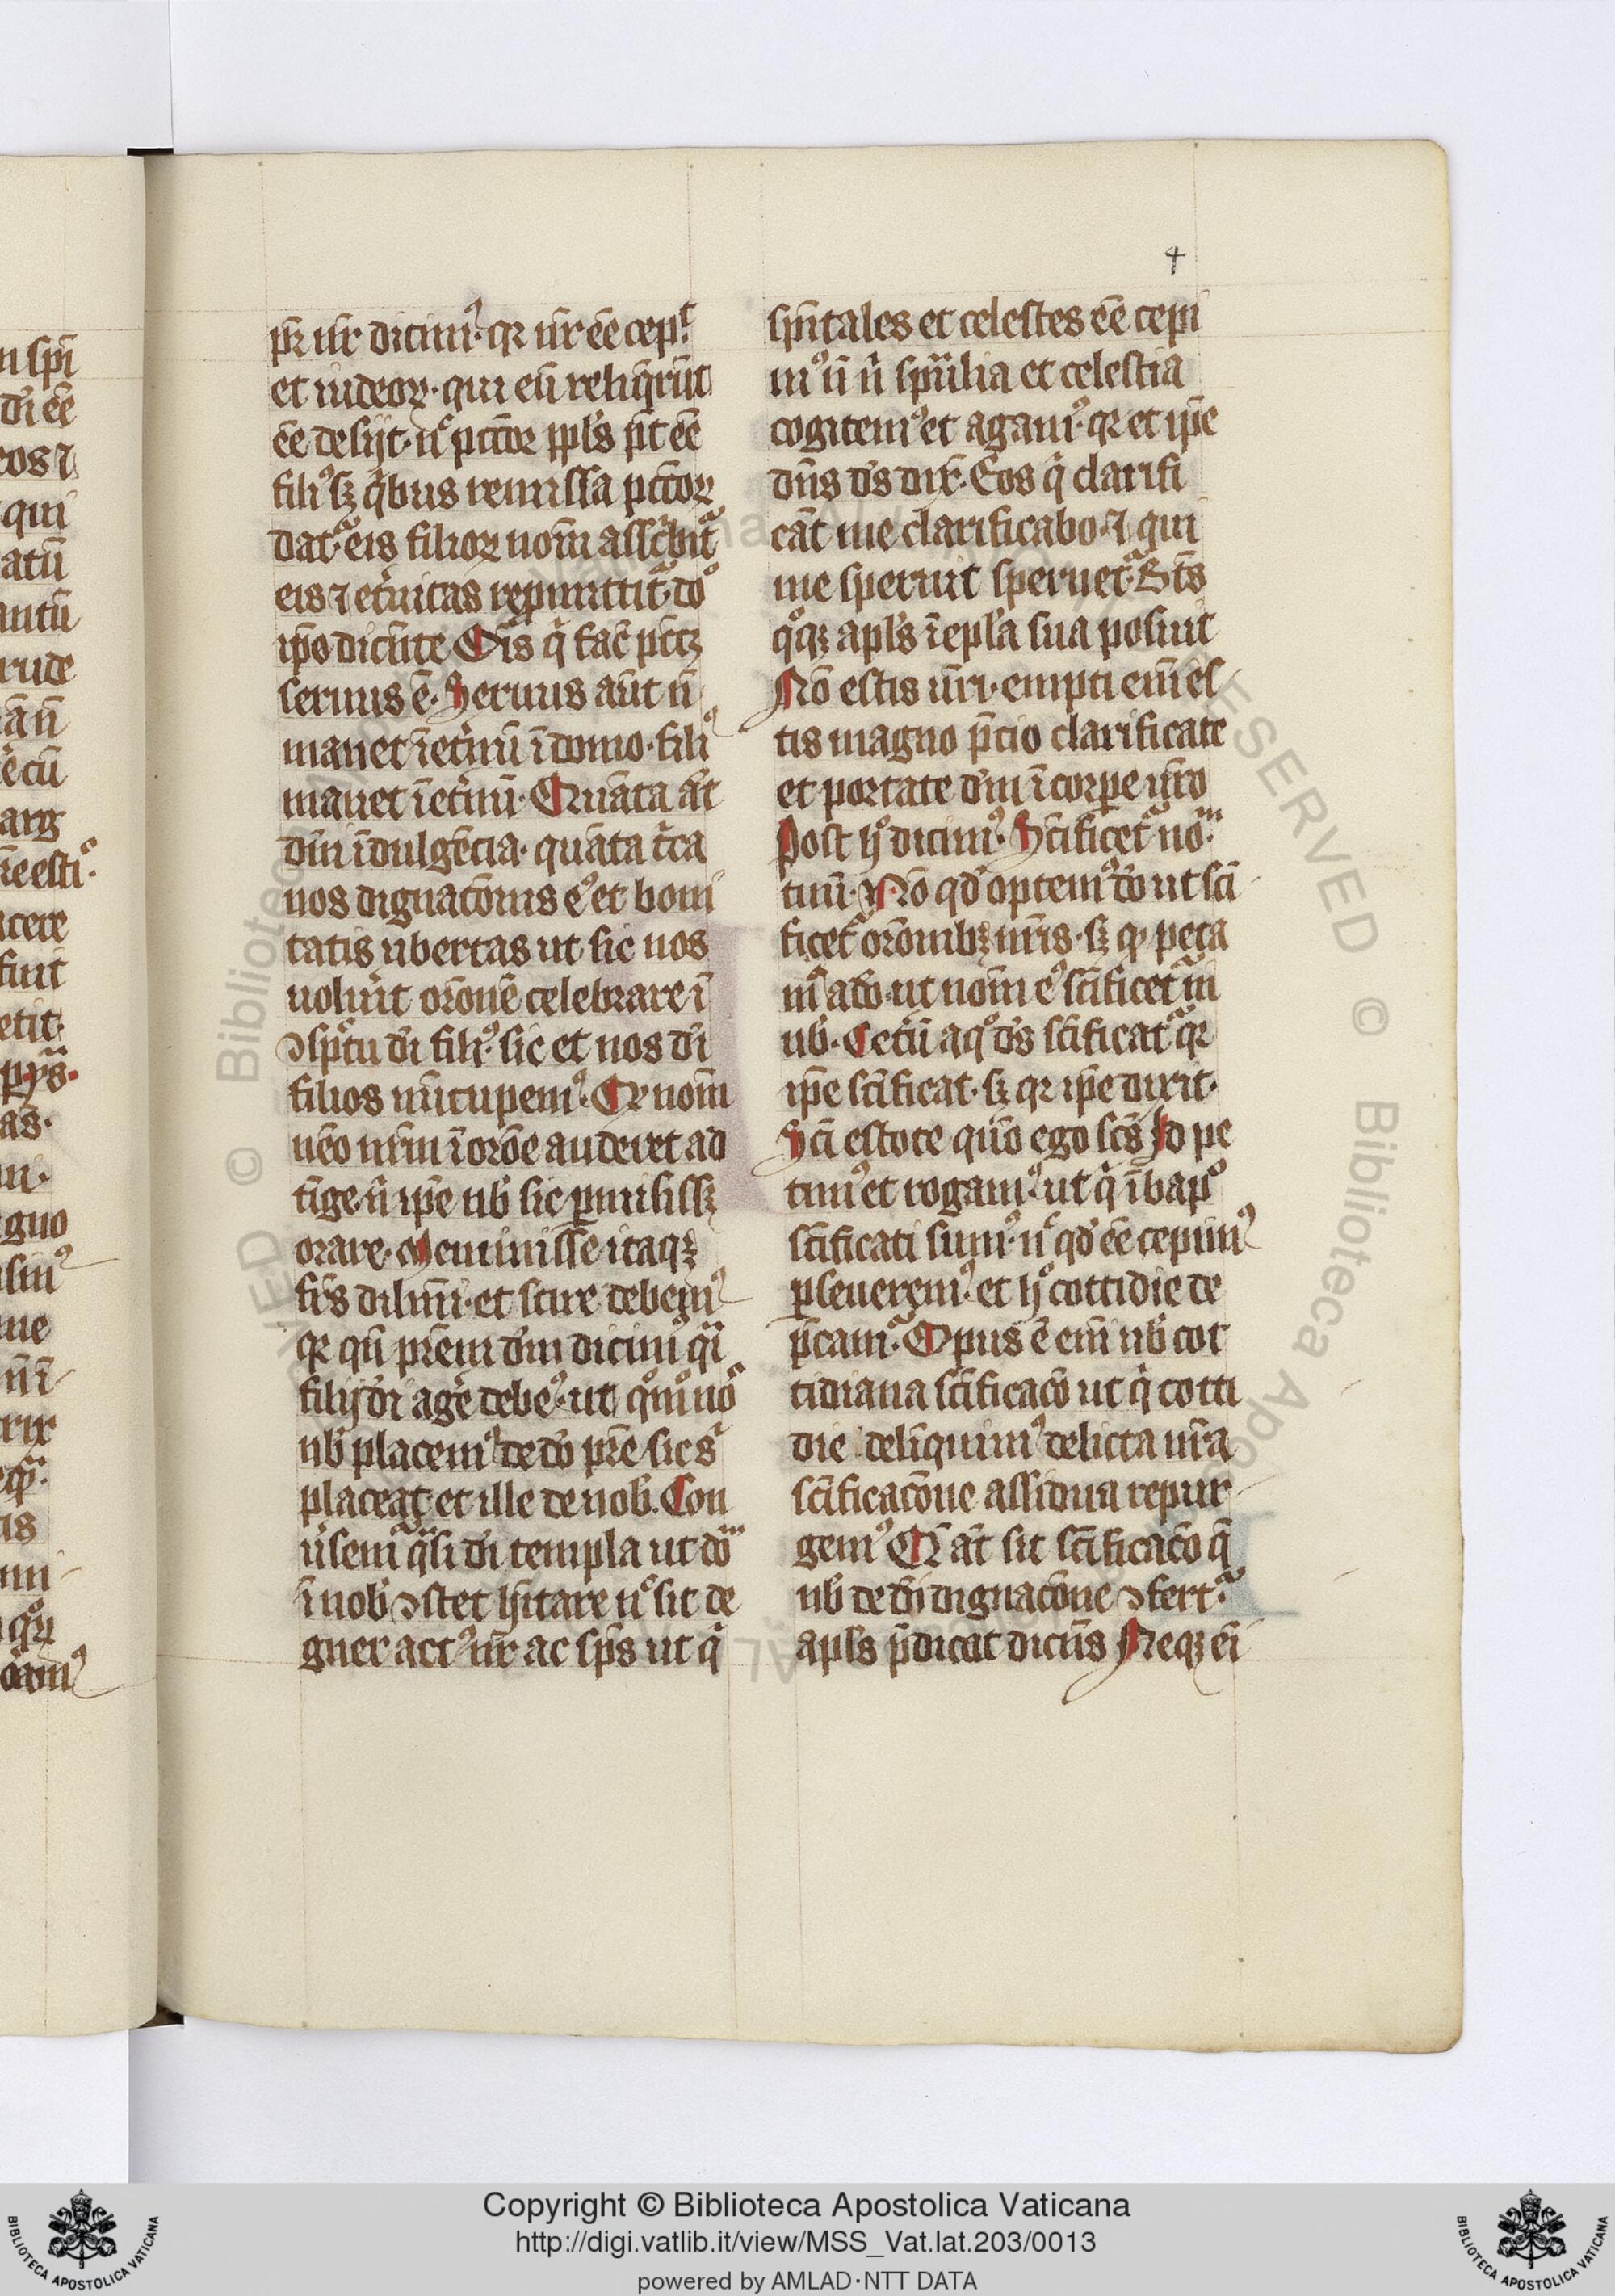 4
pr̄ nr̄ dicimꝰ· qꝛ nr̄ ēē cepͭ·
et iudeoꝝ· qui eū reliq̄rūt
ēē desijt· nͨ pctōꝝ ppl̄s pt̄ ēē
filiꝰ sꝫ qͥbus remissa pctōꝝ
datᷓ eis filioꝝ nom̄ asscͥbitᷓ
eis ⁊ et̓nitas repmittitᷓ do͛
ipō dicn̄te Oīs qͥ fac̄ pctꝫ
seruus ē· Seruus aūt n̄
manet īet̓nū īdomo· filiꝰ
manet īet̓nū· Quāta aūt
dn̄i īdulgēcia· quāta c̓ca
nos dignacōnis eꝰ et boni
tatis ubertas ut sic nos
uolūit or̄onē celebrare ī
ꝯspͨtu dī filiꝰ· sic et nos dī
filios nūcupemꝰ· Qꝛ nom̄
nēo nrm̄ īorōe auderet ad
tīge· n̄ ipē nb̓ sic pmisissꝫ
orare· Meminisse itaqꝫ
fr̄s dilmī· et scire debemꝰ
qꝛ qn̄ pr̄em dm̄ dicimꝰ qͣi
filij dī age̓ debeꝰ· ut qͦmͦ noͨ
nb̓ placemꝰ de dō pr̄e sic sͣ
placeat et ille de nob̓· Con
ūsemᷓ qͣsi dī templa ut dōͫ
ī nob̓ ꝯstet hītare nͨ sit de
gner actꝰ nr̄ ac sp̄s ut qͥ
spn̄tales et celestes ēē cepi
mꝰ n̄ n̄ spūalia et celestia
cogitemꝰ et agamꝰ· qꝛ et ipē
dn̄s ds̄ dix̄· Eos qͥ clarifi
cāt me clarificabo· ⁊ qui
me spernit spernetᷓ· Bt̄s
qͦqꝫ apl̄s īepl̄a sua posuit
Nō estis ūri· empti em̄ es
tis magno p̄cio clarificate
et portate dm̄ ī corꝑe ūro
Post hͦ dicimꝰ· Sc̄ificetᷓ noͫ
tuū· Nō qd̓ optemꝰ dō ut sc̄i
ficetᷓ or̄onibꝫ nr̄is· sꝫ qꝫ peta
mꝰ adō· ut nom̄ eꝰ sc̄ificetᷓ in
nb̓· Cetͬū aqͦ ds̄ sc̄ificatᷓ qꝛ
ipē sc̄ificat· sꝫ qꝛ ipē dixit·
Sc̄i estote qūo ego sc̄s Id pe
timꝰ et rogamꝰ· ut qͥ ī bapͦ
sc̄ificati sumꝰ· nͨ qd̓ ēē cepimꝰ
ꝑseueremꝰ· et hͦ cottidie de
p̄camᷓ· Opus ē em̄ nb̓ cot
tidiana sc̄ificacō ut qͥ cotti
die delīquimꝰ delicta nr̄a
sc̄ificacōne assidua repur
gemꝰ Q̄ aūt sit sc̄ificacō q̄
nb̓ de dī dignacōne ꝯfertᷓ·
apl̄s p̄dicat dicn̄s Neqꝫ ēi
Copyright © Biblioteca Apostolica Vaticana
http://digi.vatlib.it/view/MSS_Vat.lat.203/0013
powered by AMLAD·NTT DATA